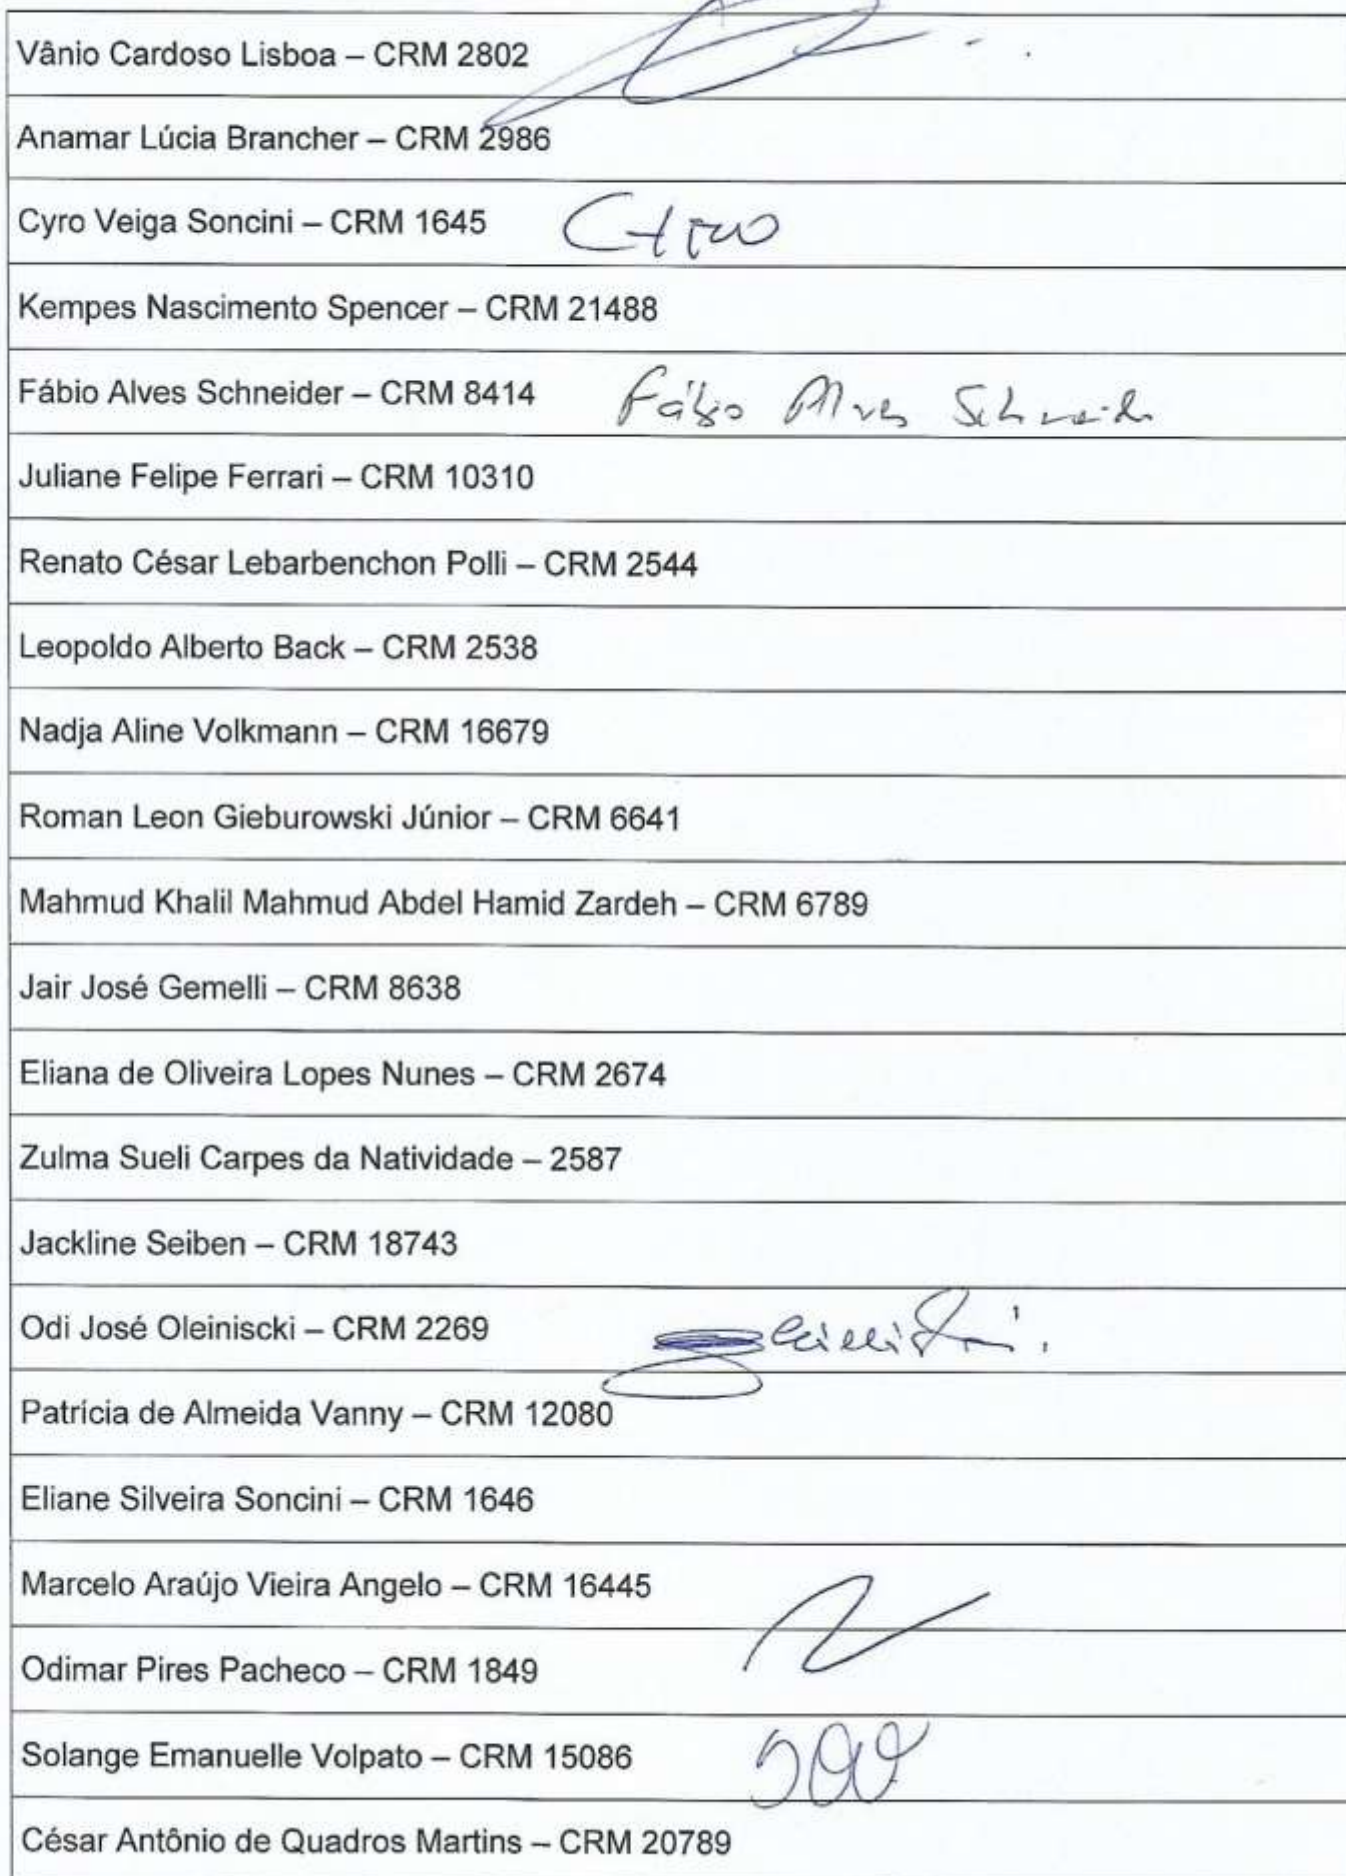 Vânio Cardoso Lisboa – CRM 2802
Anamar Lúcia Brancher – CRM 2986
Cyro Veiga Soncini – CRM 1645 Cyro
Kempes Nascimento Spencer – CRM 21488
Fábio Alves Schneider – CRM 8414 Fábio Alves Schneider
Juliane Felipe Ferrari – CRM 10310
Renato César Lebarbenchon Polli – CRM 2544
Leopoldo Alberto Back – CRM 2538
Nadja Aline Volkmann – CRM 16679
Roman Leon Gieburowski Júnior – CRM 6641
Mahmud Khalil Mahmud Abdel Hamid Zardeh – CRM 6789
Jair José Gemelli – CRM 8638
Eliana de Oliveira Lopes Nunes – CRM 2674
Zulma Sueli Carpes da Natividade – 2587
Jackline Seiben – CRM 18743
Odi José Oleiniscki – CRM 2269
Patrícia de Almeida Vanny – CRM 12080
Eliane Silveira Soncini – CRM 1646
Marcelo Araújo Vieira Angelo – CRM 16445
Odimar Pires Pacheco – CRM 1849
Solange Emanuelle Volpato – CRM 15086
César Antônio de Quadros Martins – CRM 20789